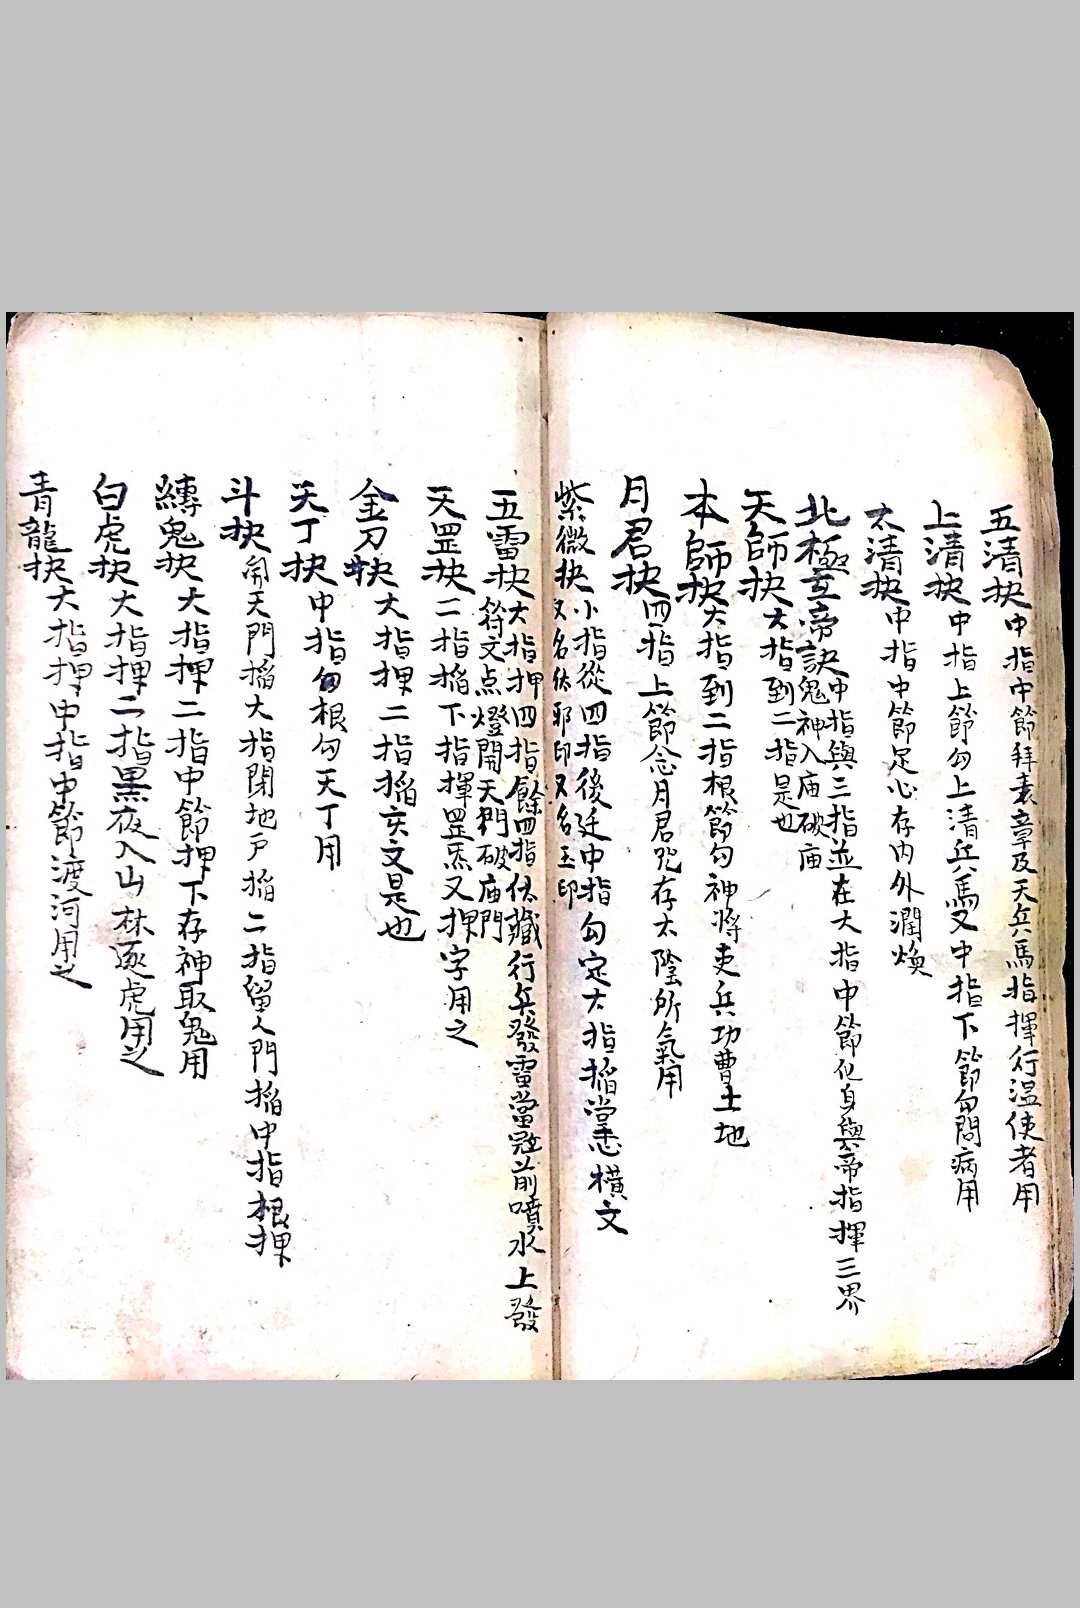 五清抉中指中節拜表章及天兵馬指揮行溫使者用
上清抉中指上節勾上清兵馬又中指下節勾問病用
太清抉中指中節足心存內外潤煥
北極玄帝訣中指與三指並在大指中節化身與帝指揮三界
鬼神入庙破庙
天師抉大指到二指是也
本師抉大指到二指根節勾神將吏兵功曹土地
月君抉四指上節念月君咒存太陰所氣用
紫微抉小指從四指後迋中指勾定大指掐掌心橫文
又名伏邪印又名玉印
五雷抉大指押四指餘四指伏藏行兵發雷當冠前噴水上發
符文点燈開天門破庙門
天罡抉二指掐下指揮罡炁又捰字用之
金刀抉大指捰二指掐亥文是也
天丁抉中指勾根勾天丁用
斗抉開天門掐大指閉地户掐二指留人門掐中指根捰
縛鬼抉大指捰二指中節押下存神取鬼用
白虎抉大指捰二指黑夜入山林逐虎用之
青龍抉大指押中指中節渡河用之